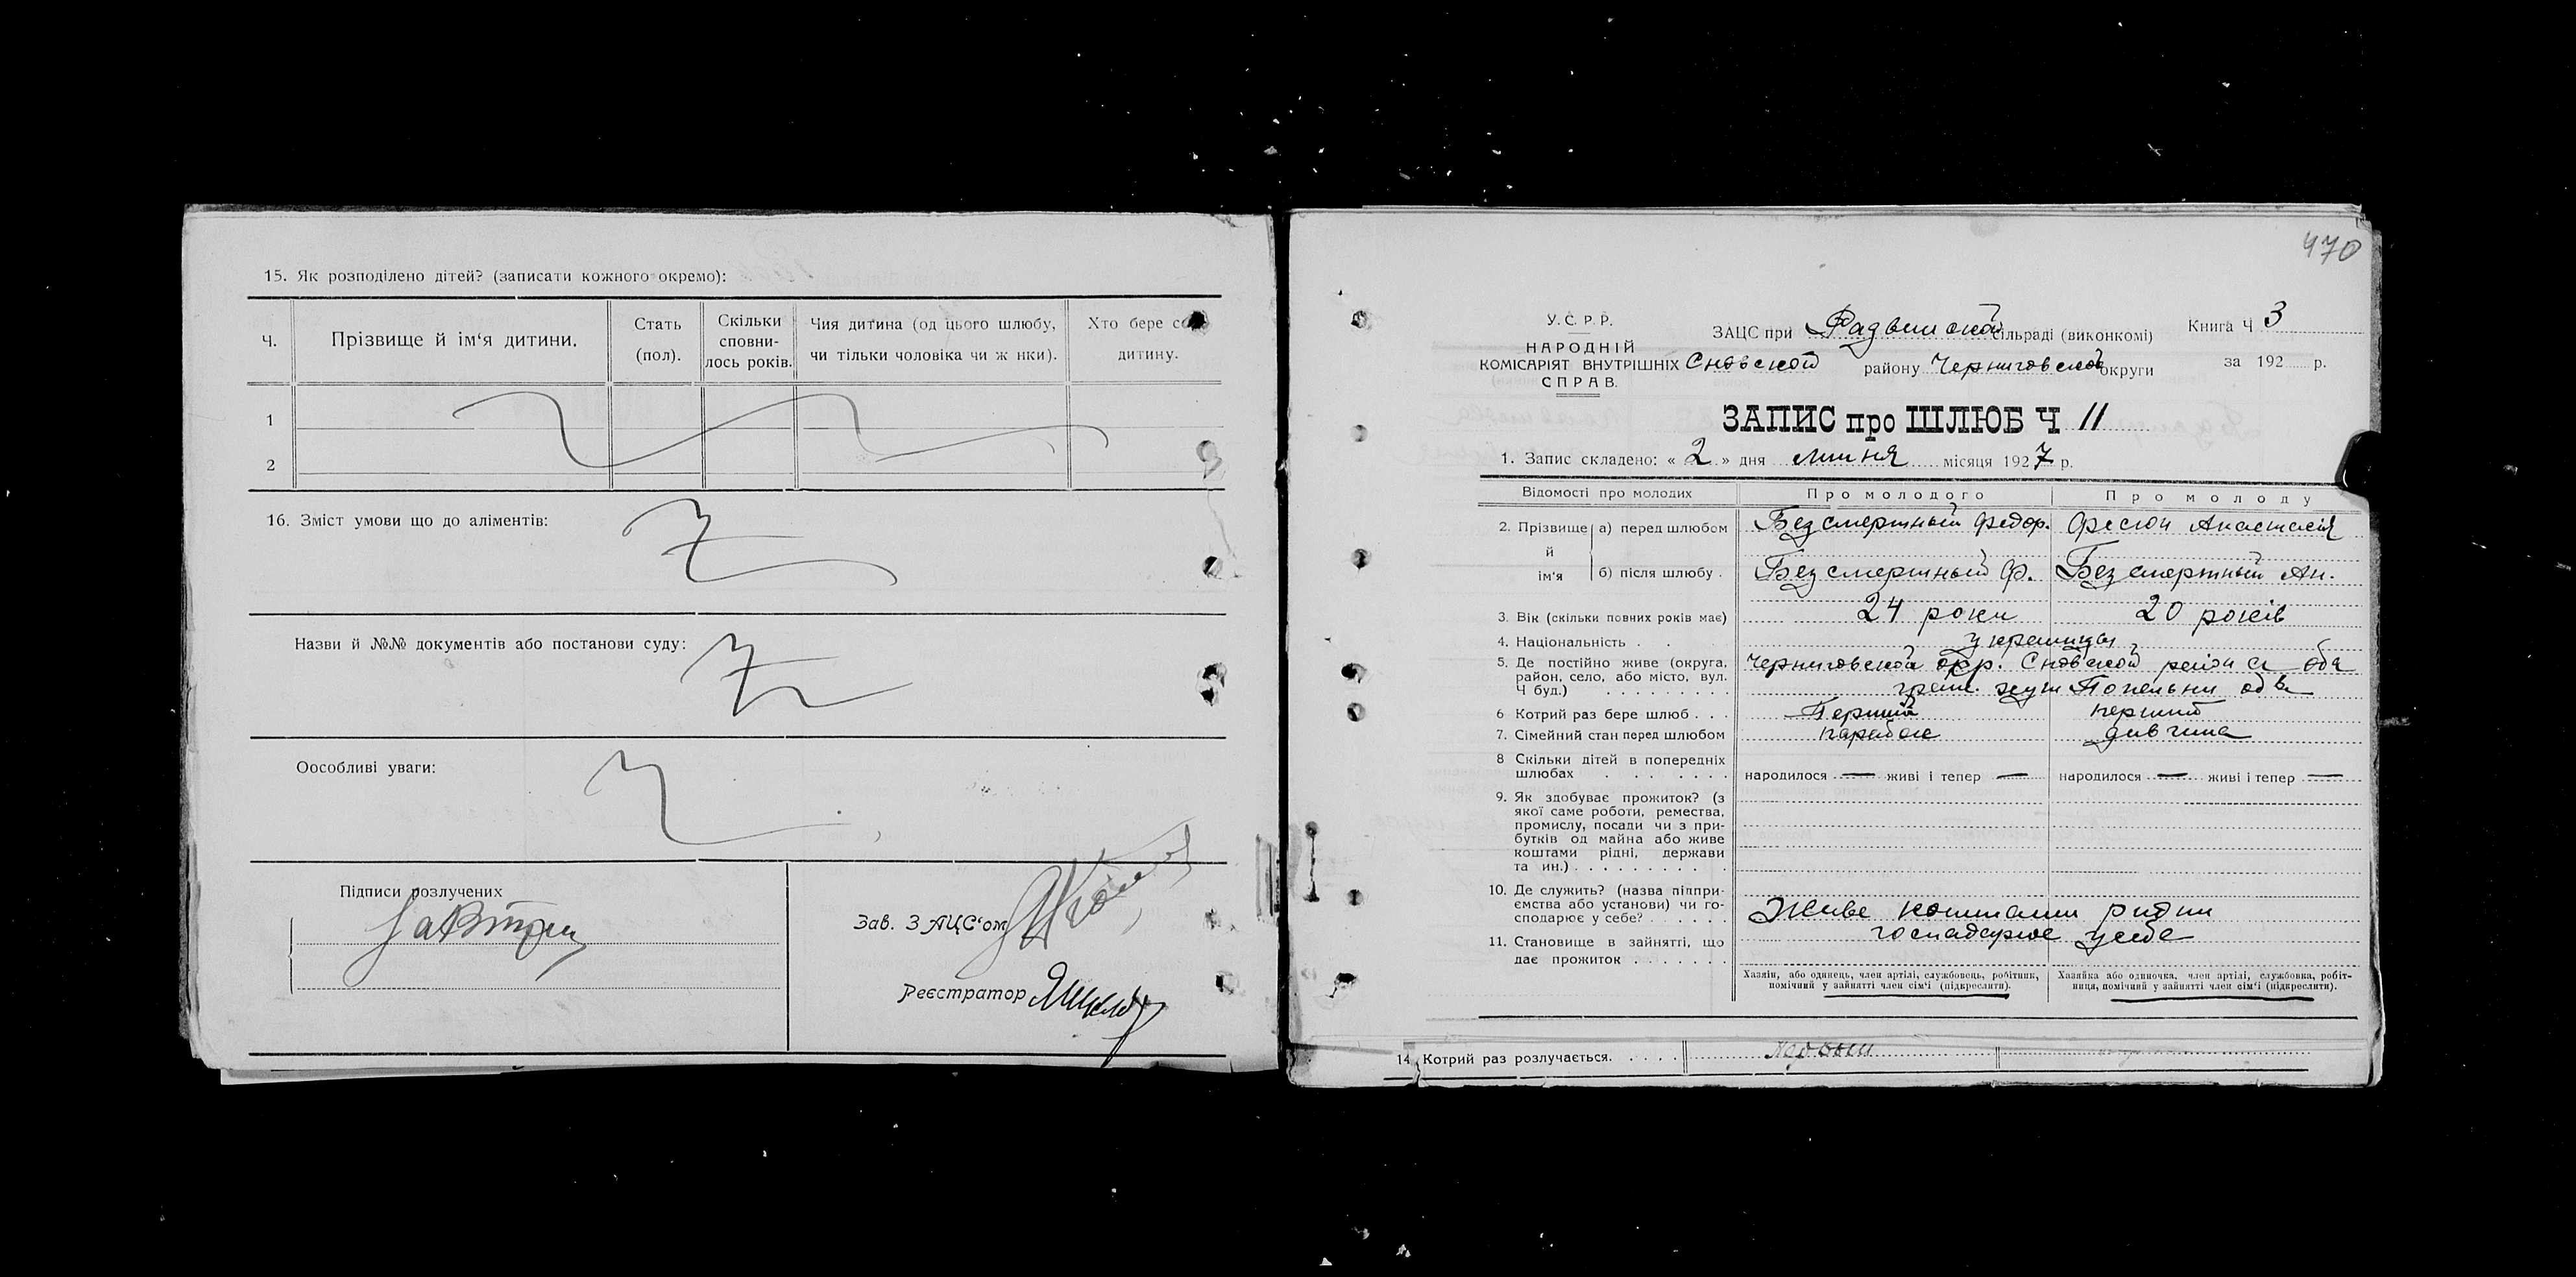 15. Як розподілено дітей? (записати кожного окремо):
Ч.
Прізвище й ім‘я дитини.
Стать (пол).
Скільки сповни-лось років.
Чия дитина (од цього шлюбу, чи тільки чоловіка чи ж нки).
Хто бере с
дитину.
1
2
16. Зміст умови що до аліментів:
Назви й №№ документів або постанови суду:
Оособливі уваги:
Підписи розлучених
Зав. ЗАЦС‘ом
Реєстратор
470
У. С. Р. Р.
НАРОДНІЙ
КОМІСАРІЯТ ВНУТРІШНІХ
СПРАВ.
ЗАЦС при сільраді (виконкомі)
Сновской району Черниговской округи
Книга Ч 3
за 192 р.
ЗАПИС про ШЛЮБ Ч 11
1. Запис складено: « 2 » дня липня місяця 1927 р.
Відомості про молодих
Про молодого
Про молоду
2. Прізвище й ім‘я
а) перед шлюбом
Безсмертный Федор.
Фесюн Анастасія
б) після шлюбу .
Безсмертный Ф.
Безсмертный Ан.
3. Вік (скільки повних років має)
24 роки
20 років
4. Національність . .
украинци
5. Де постійно живе (округа,
район, село, або місто, вул.
Ч буд.) . . . . . . . . .
Черниговской окр. Сновской района оба
хут Попельни
6 Котрий раз бере шлюб . . .
Перший
перший
7. Сімейний стан перед шлюбом
парубок
дивчина
8 Скільки дітей в попередніх
шлюбах . . . . . .
народилося — живі і тепер —
народилося — живі і тепер —
9. Як здобуває прожиток? (з
якої саме роботи, ремества,
промислу, посади чи з при-
бутків од майна або живе
коштами рідні, держави
та ин.) . . . . . . . . .
10. Де служить? (назва підпри-
ємства або установи) чи го-
сподарює у себе? . . . . .
Живе коштами ридни
господарює у себе
11. Становище в зайнятті, що
дає прожиток . . . . . . .
Хазяїн, або одинець, член артілі, службовець, робітник,
помічний у зайнятті член сім‘ї (підкреслити).
Хазяйка або одиночка, член артілі, службовка, робіт-
ниця, помічний у зайнятті член сім‘ї (підкреслити).
14 Котрий раз розлучається. . . . .